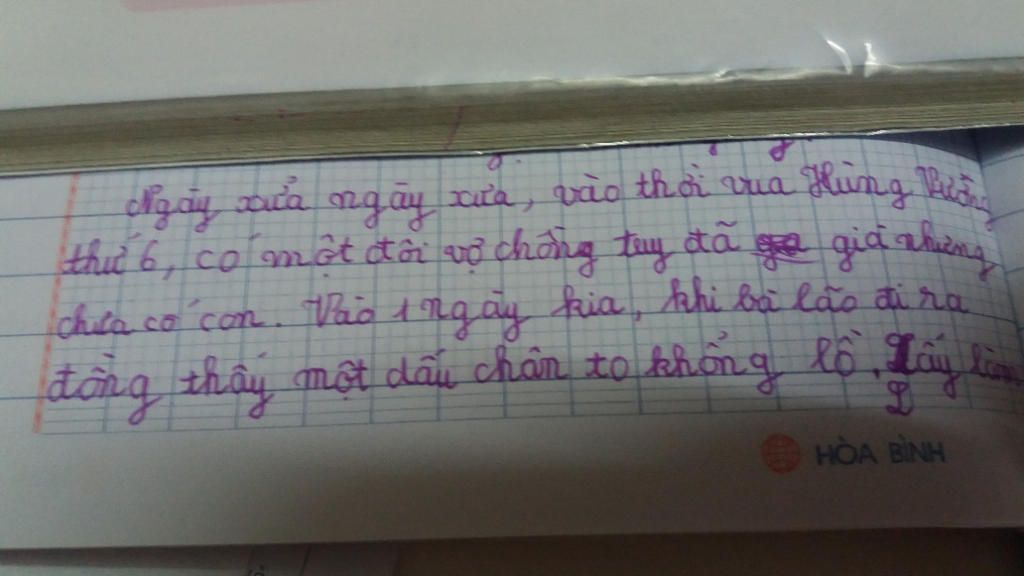 Ngày xửa ngày xưa, vào thời vua Hùng Vương
thứ 6, có một đôi vợ chồng tuy đã già nhưng
chưa có con. Vào 1 ngày kia, khi bà lão đi ra
đồng thấy một dấu chân to khổng lồ. Lấy làm
HÒA BÌNH